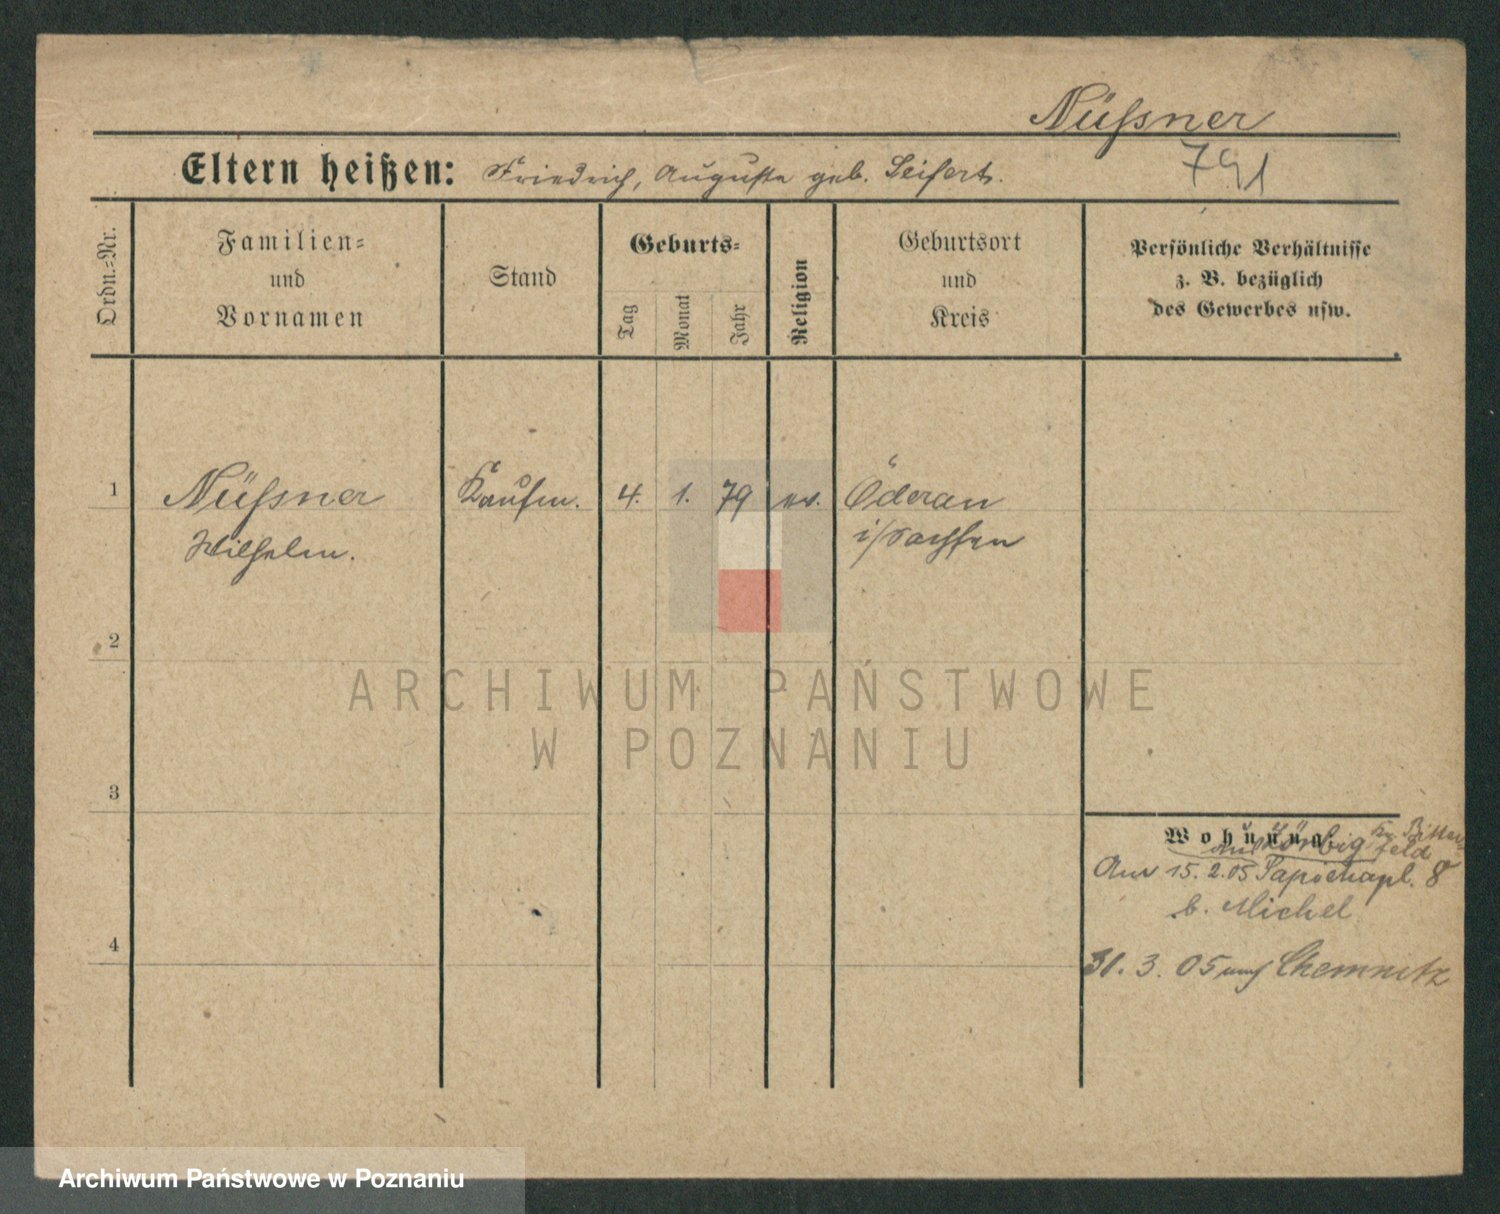 Nüßner
791
Eltern heißen: Friedrich, Auguste geb. Seifert.
Ordn.-Nr.
Familien-
und
Vornamen
Stand
Geburts-
Tag
Monat
Jahr
Religion
Geburtsort
und
Kreis
Persönliche Verhältnisse
z. B. bezüglich
des Gewerbes usw.
1 Nüßner Kaufm. 4. 1. 79 ev. Öderan
Wilhelm. i/Sachsen
2
3
4
Wohnung
aus Zörbig Kr. Bitter
feld
Am 15.2.05 Sapiehapl. 8
b. Michel
31. 3. 05 nach Chemnitz
ARCHIWUM PAŃSTWOWE
W POZNANIU
Archiwum Państwowe w Poznaniu